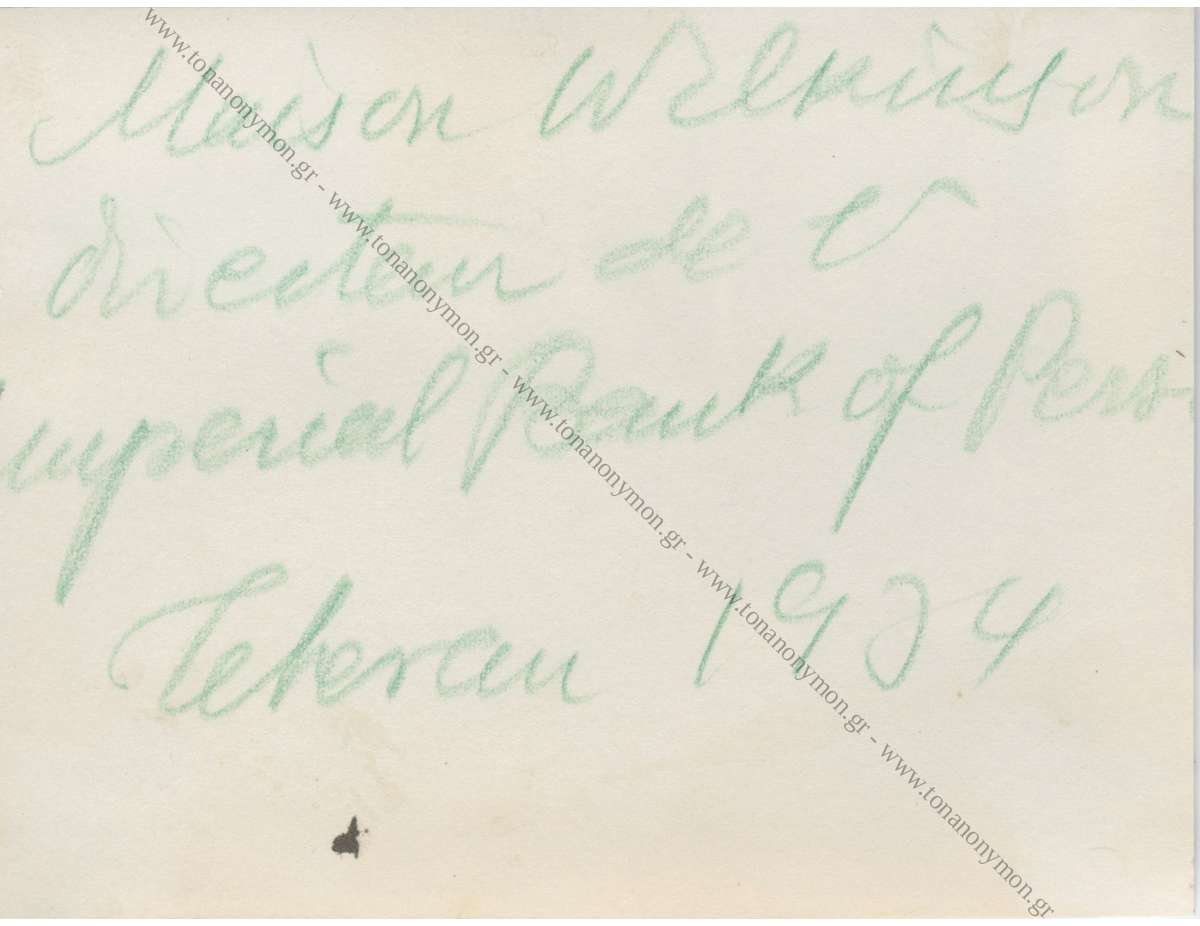 Maison Wilkinson
directeur de l'
Imperial Bank of Pers
Teheran 1934
www.tonanonymon.gr - www.tonanonymon.gr - www.tonanonymon.gr - www.tonanonymon.gr - www.tonanonymon.gr